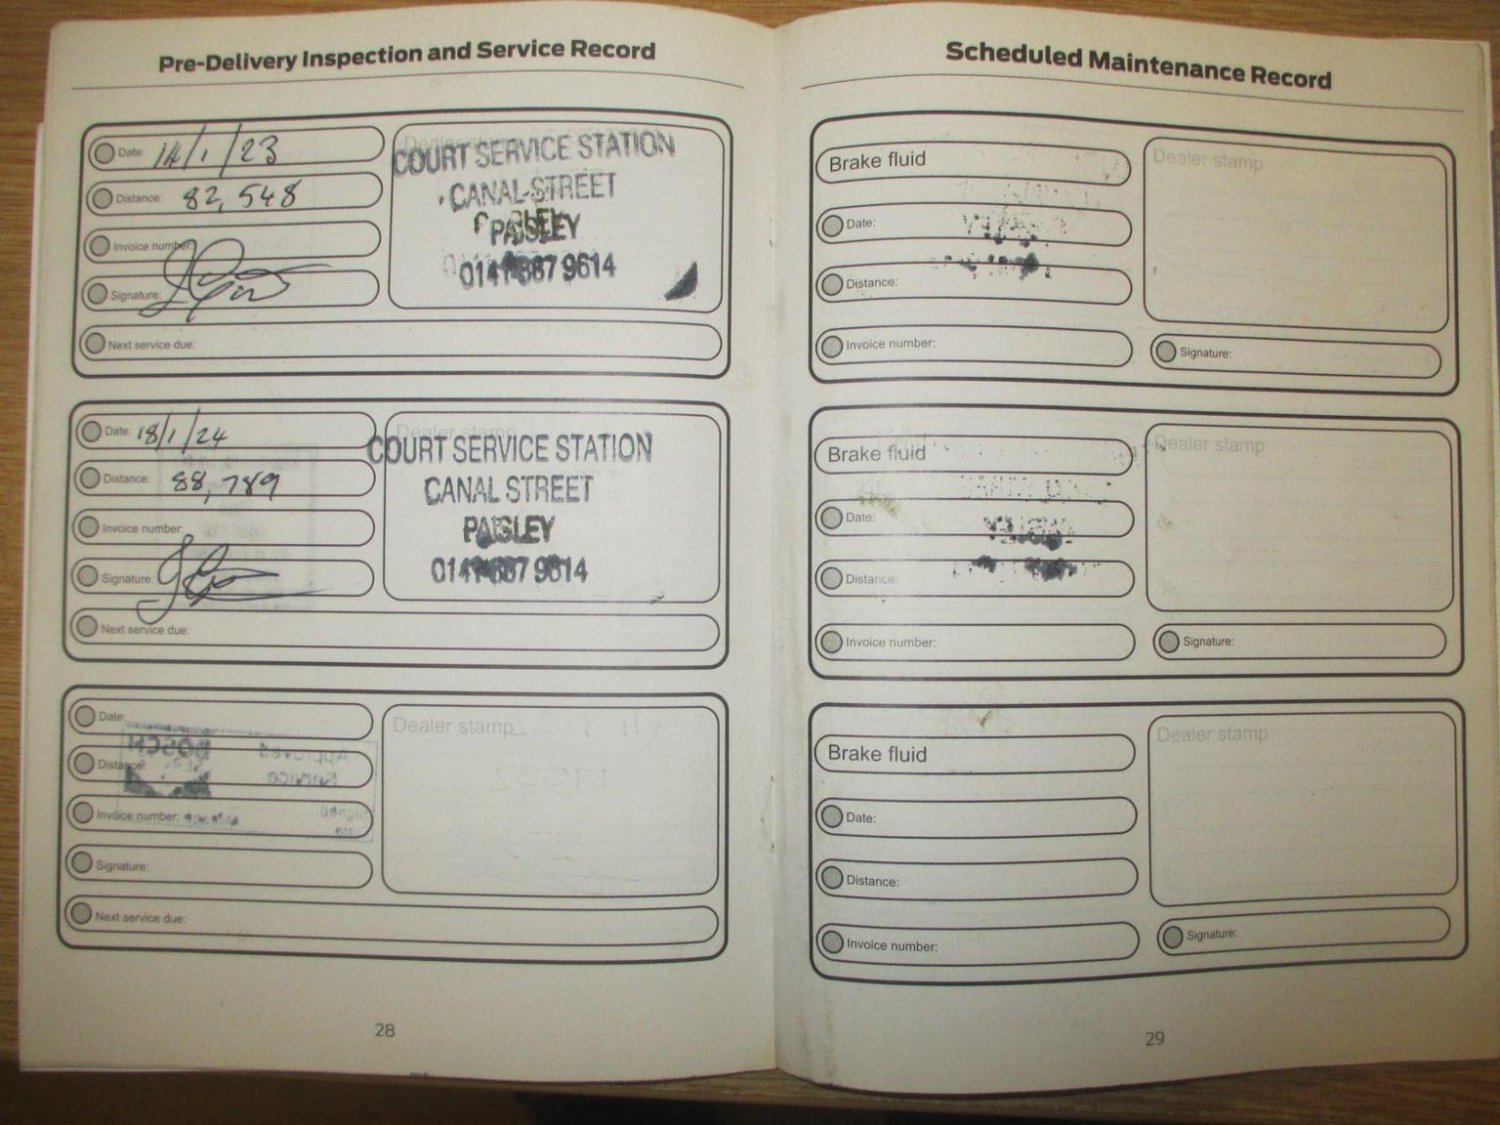 Pre-Delivery Inspection and Service Record
Date: 14/1/23
Distance: 82,548
Invoice number:
Signature:
Next service due:
Dealer stamp
COURT SERVICE STATION
CANAL STREET
PAISLEY
0141 887 9614
Date: 18/1/24
Distance: 88,789
Invoice number:
Signature:
Next service due:
Dealer stamp
COURT SERVICE STATION
CANAL STREET
PAISLEY
0141 887 9614
Date:
Distance:
Invoice number:
Signature:
Next service due:
Dealer stamp
BOSCH
Approved
Service
28
Scheduled Maintenance Record
Brake fluid
Date:
Distance:
Invoice number:
Dealer stamp
Signature:
Brake fluid
Date:
Distance:
Invoice number:
Dealer stamp
Signature:
Brake fluid
Date:
Distance:
Invoice number:
Dealer stamp
Signature:
29